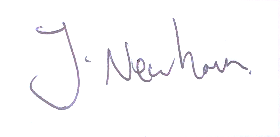 J. Newham